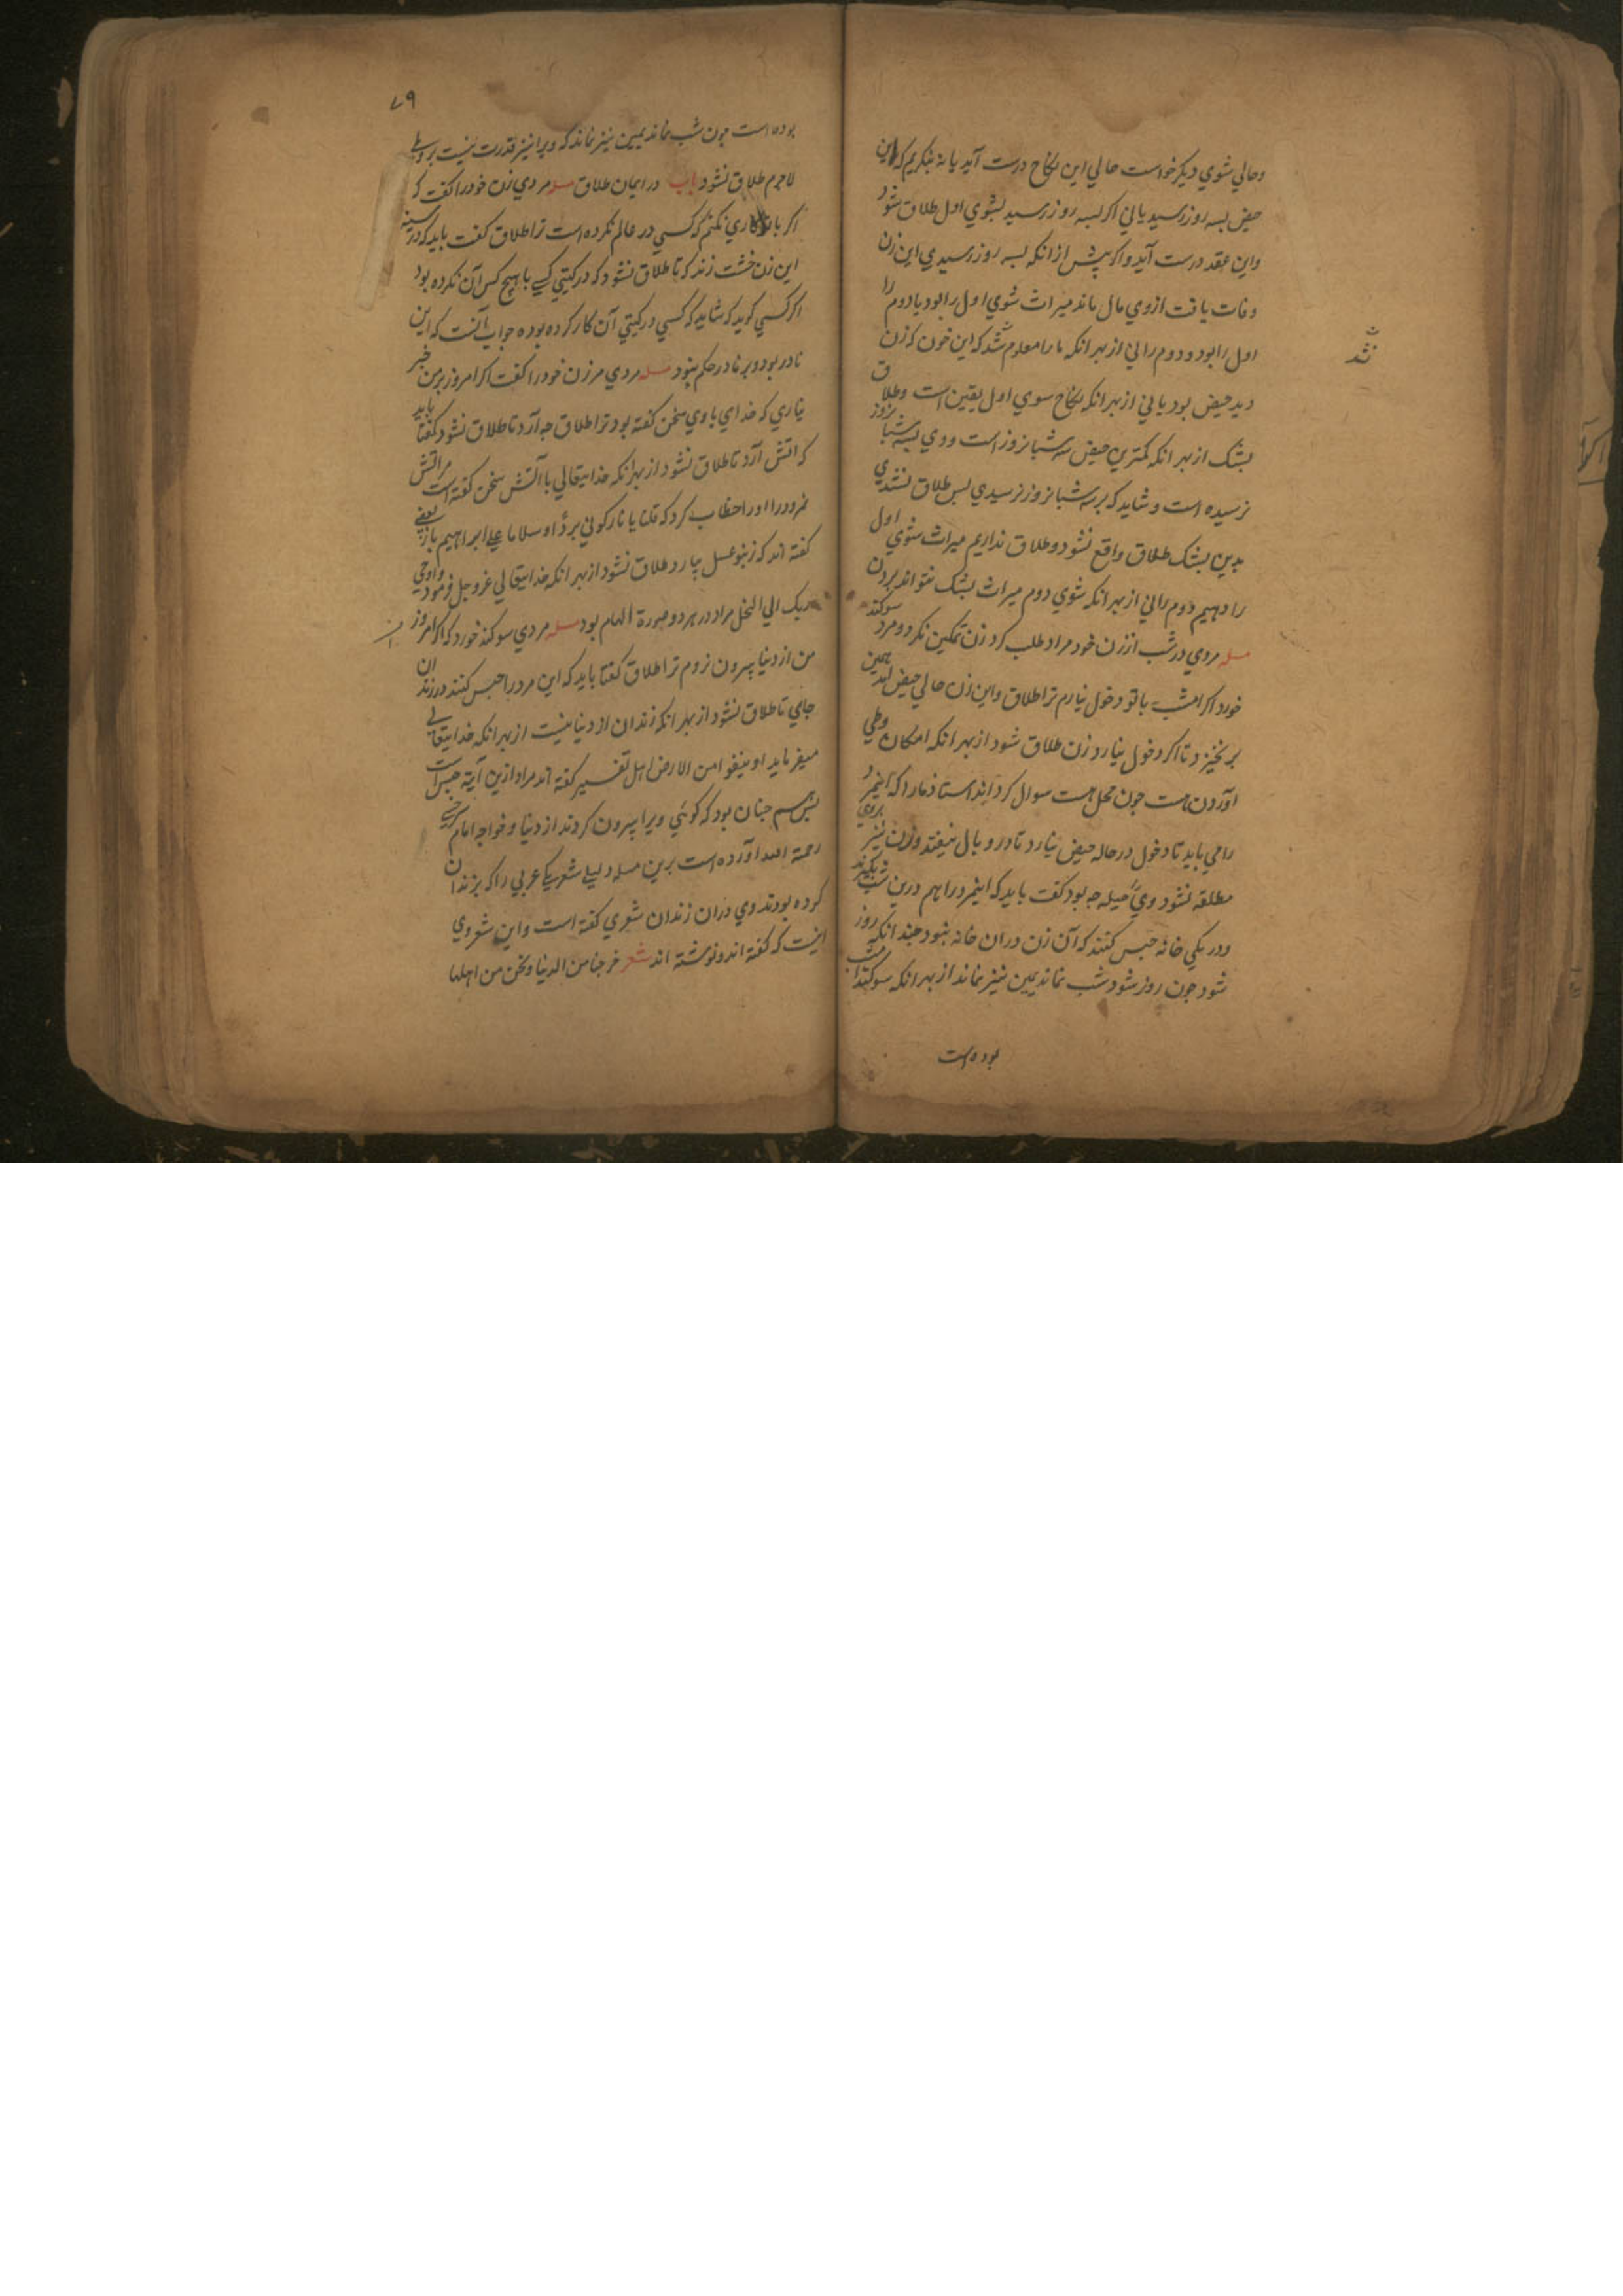 وحالي شوي ديكر خواست حالي اين نكاح درست آيد يا نه بنكريم كه اين
حيض بسه روز رسيد يا ني اكر بسه روز رسيد بشوي اول طلاق شود
واين عقد درست آيد واكر پيش از انكه بسه روز رسيدي اين زن
وفات يافت از وي مال ماند ميراث شوي اول را بود يا دوم را
اول را بود ودوم را ني از بهر انكه ما را معلوم نشد كه اين خون كه زن
ديد حيض بود يا ني از بهر انكه نكاح سوي اول يقين است وطلاق
بشك از بهر انكه كمترين حيض سه شبانروز است ووي بسه شبانروز
نرسيده است وشايد كه بر سه شبانروز نرسيدي بس طلاق نشدي
بدين بشك طلاق واقع نشود وطلاق نداريم ميراث شوي اول
را دهيم دوم را ني از بهر انكه شوي دوم ميراث بشك نتواند بردن
مسله مردي در شب از زن خود مراد طلب كرد زن تمكين نكرد ومرد سوكند
خورد اكر امشب با تو دخول نيارم ترا طلاق واين زن حالي حيض آمد همين
برنخيزد تا اكر دخول نيارد زن طلاق شود از بهر انكه امكان وطي
آوردن هست جون محل هست سوال كردند استاد ما را كه اينمرد
را مي بايد تا دخول در حاله حيض نيارد تا در وبال نيفتد وزن نيز بروي
مطلقه نشود ويرا حيله جه بود كفت بايد كه اينمرد را هم درين شب بكيرند
ودر يكي خانه حبس كنند كه آن زن دران خانه نبود جند انكه روز
شود جون روز شود شب نماند يمين نيز نماند از بهر انكه سوكند امشب
بوده است
۷۹
بوده است جون شب نماند يمين نيز نماند كه ويرا نيز قدرت نيست بر وطي
لاجرم طلاق نشود باب در ايمان طلاق مسله مردي زن خود را كفت كه
اكر با تو كاري نكنم كه كسي در عالم نكرده است ترا طلاق كفت بايد كه در سينه
اين زن خشت زند كه تا طلاق نشود كه در كيتي كسي با هيج كس آن نكرده بود
اكر كسي كويد كه شايد كه كسي در كيتي آن كار كرده بوده جواب آنست كه اين
نادر بود وبر نادر حكم نبود مسله مردي مر زن خود را كفت اكر امروز بر من خبر
نياري كه خداي با وي سخن كفته بود ترا طلاق جه آرد تا طلاق نشود كفتا بايد
كه اتش آرد تا طلاق نشود از بهر انكه خدايتعالي با آتش سخن كفته است مر اتش
نمرود را او را خطاب كرد كه قلنا يا نار كوني بردا وسلاما علي ابراهيم باز بعضي
كفته اند كه زنبو عسل بيارد طلاق نشود از بهر انكه خدايتعالي عز وجل فرمود واوحي
ربك الي النحل مراد در هر دو صورة الهام بود مسله مردي سوكند خورد كه اكر امروز
من از دنيا بيرون نروم ترا طلاق كفتا بايد كه اين مرد را حبس كنند در زندان
جايي تا طلاق نشود از بهر انكه زندان از دنيا نيست از بهر انكه خدايتعالي
ميفرمايد او ينفوا من الارض اهل تفسير كفته اند مراد ازين آية حبس است
بس هم جنان بود كه كوئي ويرا بيرون كردند از دنيا وخواجه امام سرخسي
رحمة الله آورده است برين مسله دليلي شعر يكي عربي را كه بزندان
كرده بودند وي دران زندان شعري كفته است واين شعر وي
اينست كه كفته اند ونوشته اند شعر خرجنا من الدنيا ونحن من اهلها